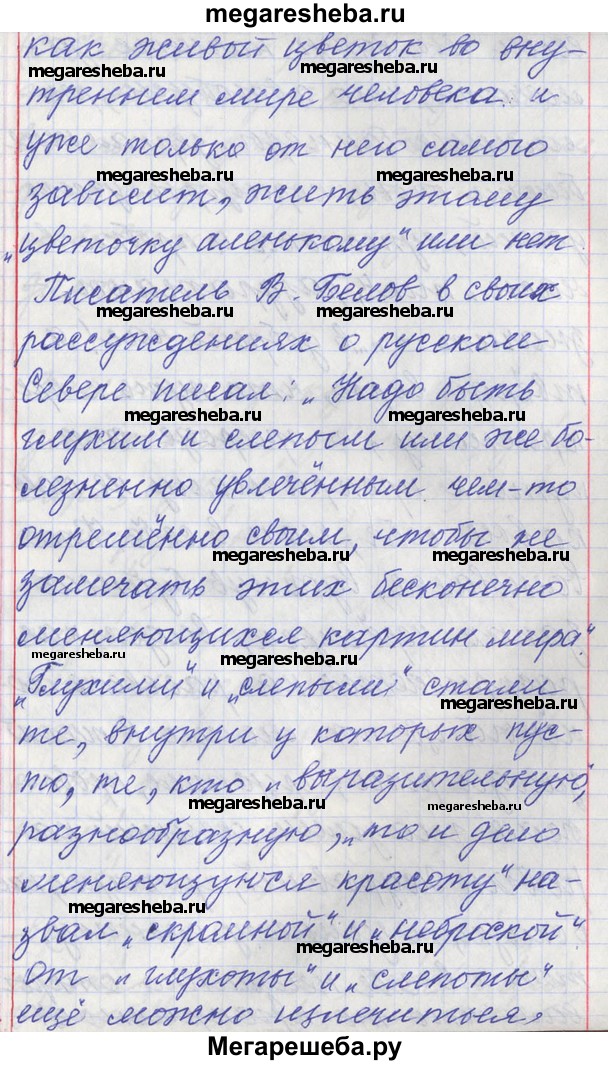 megaresheba.ru
как живой цветок во вну-
megaresheba.ru megaresheba.ru
треннем мире человека и
уже только от него самого
megaresheba.ru megaresheba.ru
зависит, жить этому
„цветочку аленькому“ или нет.
Писатель В. Белов в своих
megaresheba.ru megaresheba.ru
рассуждениях о русском
Севере писал: „Надо быть
megaresheba.ru megaresheba.ru
глухим и слепым или же бо-
лезненно увлечённым чем-то
отрешённо своим, чтобы не
megaresheba.ru megaresheba.ru
замечать этих бесконечно
меняющихся картин мира“.
megaresheba.ru megaresheba.ru
„Глухими“ и „слепыми“ стали
megaresheba.ru megaresheba.ru
те, внутри у которых пус-
то, те, кто „выразительную“,
megaresheba.ru megaresheba.ru
разнообразную, „то и дело
меняющуюся красоту“ на-
megaresheba.ru megaresheba.ru
звал „скромной“ и „неброской“.
megaresheba.ru
От „глухоты“ и „слепоты“
ещё можно излечиться,
Мегарешеба.ру